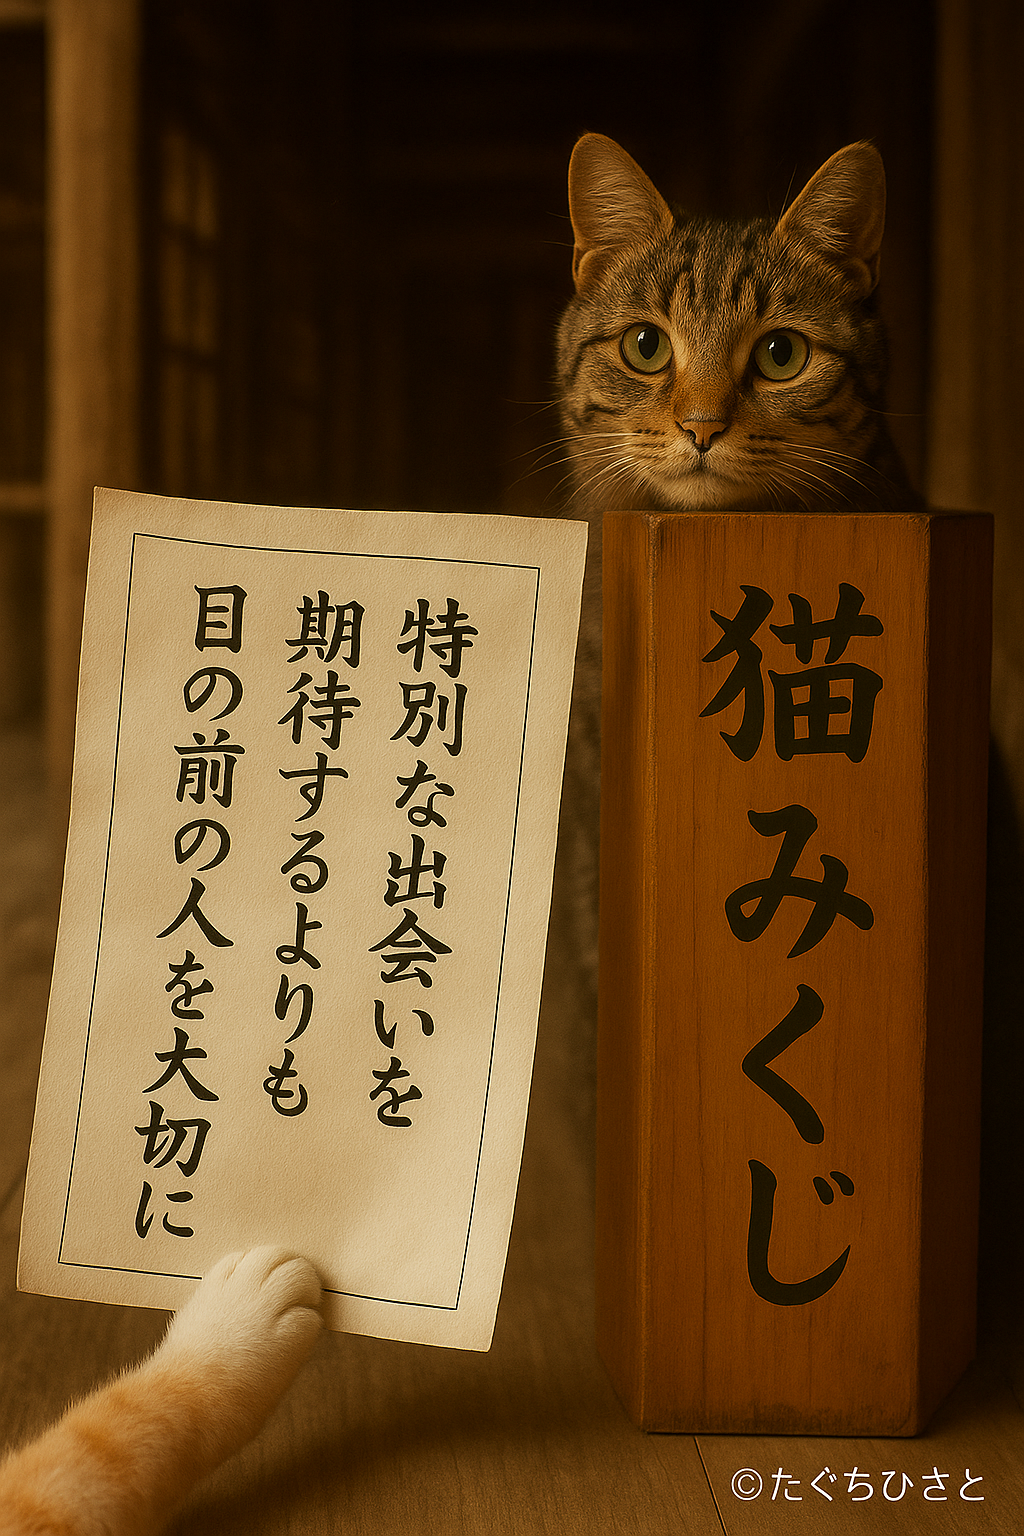 特別な出会いを
期待するよりも
目の前の人を大切に
猫みくじ
©たぐちひさと